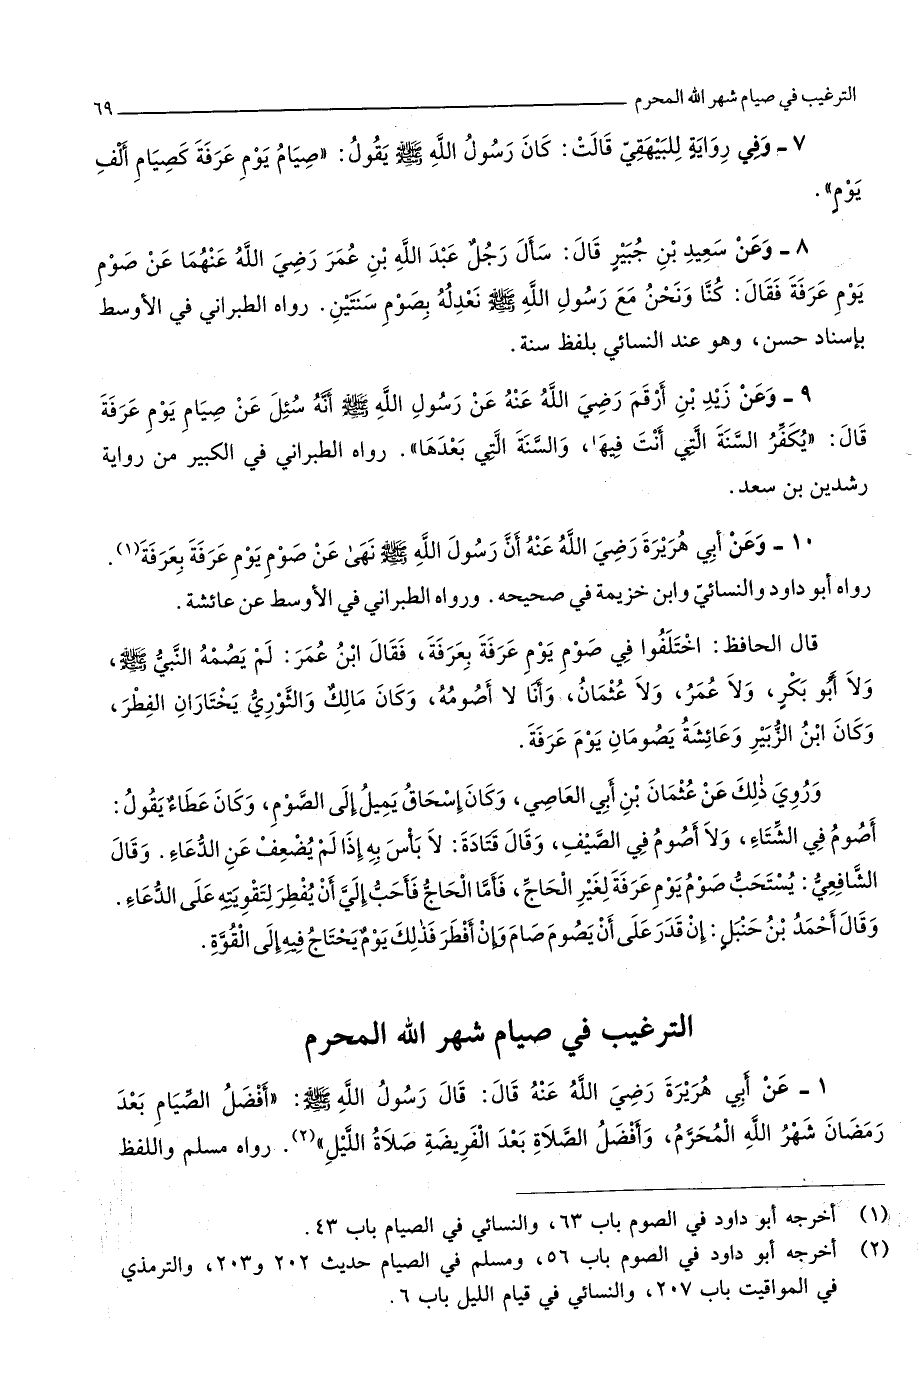 الترغيب في صيام شهر الله المحرم ٦٩
٧ ـ وَفِي رِوَايَةٍ لِلبَيْهَقِيّ قَالَتْ: كَانَ رَسُولُ اللَّهِ ﷺ يَقُولُ: «صِيَامُ يَوْمِ عَرَفَةَ كَصِيَامِ أَلْفِ
يَوْمٍ».
٨ ـ وَعَنْ سَعِيدِ بْنِ جُبَيْرٍ قَالَ: سَأَلَ رَجُلٌ عَبْدَ اللَّهِ بْنِ عُمَرَ رَضِيَ اللَّهُ عَنْهُمَا عَنْ صَوْمِ
يَوْمِ عَرَفَةَ فَقَالَ: كُنَّا وَنَحْنُ مَعَ رَسُولِ اللَّهِ ﷺ نَعْدِلُهُ بِصَوْمِ سَنَتَيْنِ. رواه الطبراني في الأوسط
بإسناد حسن، وهو عند النسائي بلفظ سنة.
٩ ـ وَعَنْ زَيْدِ بْنِ أَرْقَمَ رَضِيَ اللَّهُ عَنْهُ عَنْ رَسُولِ اللَّهِ ﷺ أَنَّهُ سُئِلَ عَنْ صِيَامِ يَوْمِ عَرَفَةَ
قَالَ: «يُكَفِّرُ السَّنَةَ الَّتِي أَنْتَ فِيهَا، وَالسَّنَةَ الَّتِي بَعْدَهَا». رواه الطبراني في الكبير من رواية
رشدين بن سعد.
١٠ ـ وَعَنْ أَبِي هُرَيْرَةَ رَضِيَ اللَّهُ عَنْهُ أَنَّ رَسُولَ اللَّهِ ﷺ نَهَىٰ عَنْ صَوْمِ يَوْمِ عَرَفَةَ بِعَرَفَةَ(١).
رواه أبو داود والنسائيّ وابن خزيمة في صحيحه. ورواه الطبراني في الأوسط عن عائشة.
قال الحافظ: اخْتَلَفُوا فِي صَوْمِ يَوْمِ عَرَفَةَ بِعَرَفَةَ، فَقَالَ ابْنُ عُمَرَ: لَمْ يَصُمْهُ النَّبِيُّ ﷺ،
وَلاَ أَبُو بَكْرٍ، وَلاَ عُمَرُ، وَلاَ عُثْمَانُ، وَأَنَا لا أَصُومُهُ، وَكَانَ مَالِكٌ وَالثَّوْرِيُّ يَخْتَارَانِ الفِطْرَ،
وَكَانَ ابْنُ الزُّبَيْرِ وَعَائِشَةُ يَصُومَانِ يَوْمَ عَرَفَةَ.
وَرُوِيَ ذٰلِكَ عَنْ عُثْمَانَ بْنِ أَبِي العَاصِي، وَكَانَ إِسْحَاقُ يَمِيلُ إِلَى الصَّوْمِ، وَكَانَ عَطَاءٌ يَقُولُ:
أَصُومُ فِي الشِّتَاءِ، وَلاَ أَصُومُ فِي الصَّيْفِ، وَقَالَ قَتَادَةَ: لاَ بَأْسَ بِهِ إِذَا لَمْ يُضْعِفْ عَنِ الدُّعَاءِ. وَقَالَ
الشَّافِعِيُّ: يُسْتَحَبُّ صَوْمُ يَوْمِ عَرَفَةَ لِغَيْرِ الْحَاجِّ، فَأَمَّا الْحَاجُّ فَأَحَبُّ إِلَيَّ أَنْ يُفْطِرَ لِتَقْوِيَتِهِ عَلَى الدُّعَاءِ.
وَقَالَ أَحْمَدُ بْنُ حَنْبَلٍ: إِنْ قَدَرَ عَلَى أَنْ يَصُومَ صَامَ وَإِنْ أَفْطَرَ فَذٰلِكَ يَوْمٌ يَحْتَاجُ فِيهِ إِلَى الْقُوَّةِ.
الترغيب في صيام شهر الله المحرم
١ ـ عَنْ أَبِي هُرَيْرَةَ رَضِيَ اللَّهُ عَنْهُ قَالَ: قَالَ رَسُولُ اللَّهِ ﷺ: «أَفْضَلُ الصِّيَامِ بَعْدَ
رَمَضَانَ شَهْرُ اللَّهِ الْمُحَرَّمُ، وَأَفْضَلُ الصَّلاَةِ بَعْدَ الْفَرِيضَةِ صَلاَةُ اللَّيْلِ»(٢). رواه مسلم واللفظ
(١) أخرجه أبو داود في الصوم باب ٦٣، والنسائي في الصيام باب ٤٣.
(٢) أخرجه أبو داود في الصوم باب ٥٦، ومسلم في الصيام حديث ٢٠٢ و٢٠٣، والترمذي
في المواقيت باب ٢٠٧، والنسائي في قيام الليل باب ٦.